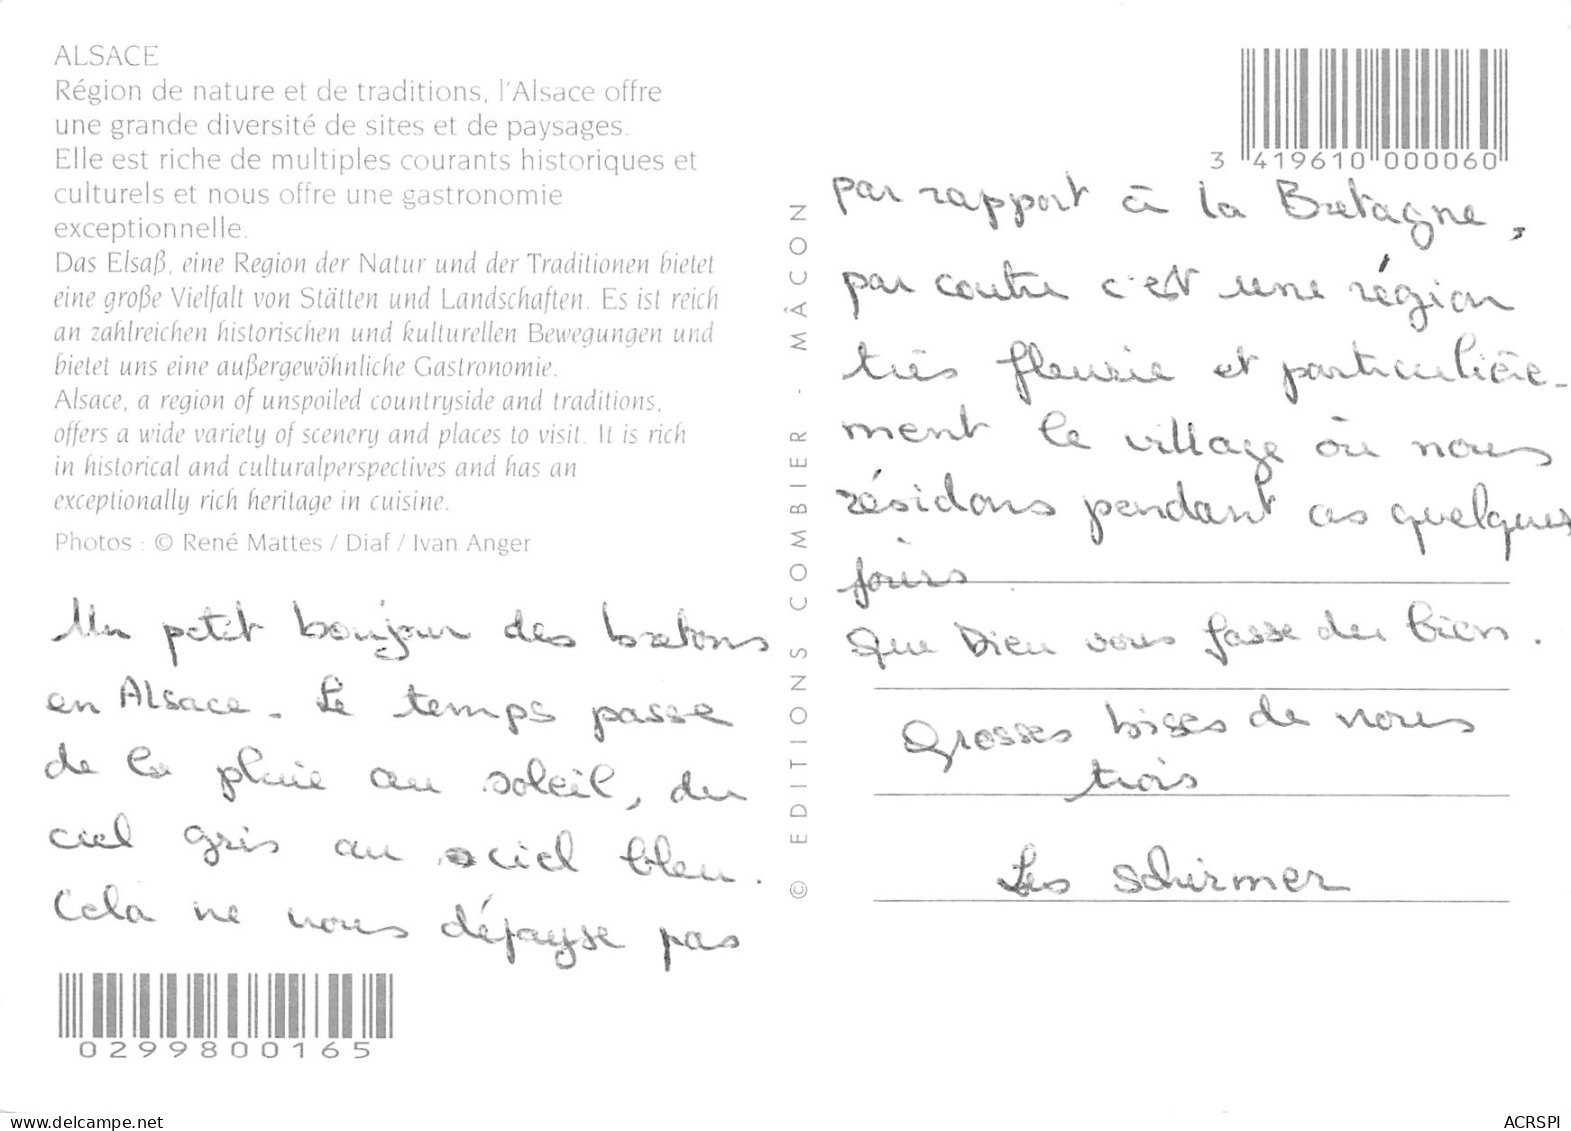 ALSACE
Région de nature et de traditions, l'Alsace offre
une grande diversité de sites et de paysages.
Elle est riche de multiples courants historiques et
culturels et nous offre une gastronomie
exceptionnelle.
Das Elsaß, eine Region der Natur und der Traditionen bietet
eine große Vielfalt von Stätten und Landschaften. Es ist reich
an zahlreichen historischen und kulturellen Bewegungen und
bietet uns eine außergewöhnliche Gastronomie.
Alsace, a region of unspoiled countryside and traditions,
offers a wide variety of scenery and places to visit. It is rich
in historical and culturalperspectives and has an
exceptionally rich heritage in cuisine.
Photos : © René Mattes / Diaf / Ivan Anger
Un petit bonjour des bretons
en Alsace. Le temps passe
de la pluie au soleil, du
ciel gris au ciel bleu.
Cela ne nous dépayse pas
0299800165
© EDITIONS COMBIER - MÂCON
3 419610 000060
par rapport à la Bretagne,
par contre c'est une région
très fleurie et particulière-
ment le village où nous
résidons pendant ces quelques
jours
Que Dieu vous fasse du bien.
Grosses bises de nous
trois
Les Schirmer
delcampe.net
ACRSPI